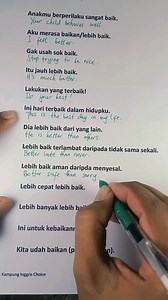 Anakmu berperilaku sangat baik.
Your child behaved well
Aku merasa baikan/lebih baik.
I feel better
Gak usah sok baik.
Stop trying to be nice.
Itu jauh lebih baik.
It's much better.
Lakukan yang terbaik!
Do your best!
Ini hari terbaik dalam hidupku.
This is the best day in my life.
Dia lebih baik dari yang lain.
He is better than others
Lebih baik terlambat daripada tidak sama sekali.
Better late than never
Lebih baik aman daripda menyesal.
Better safe than sorry
Lebih cepat lebih baik.
Lebih banyak lebih bai
Ini untuk kebaikan
Kita udah baikan (p
Kampung Inggris Choice